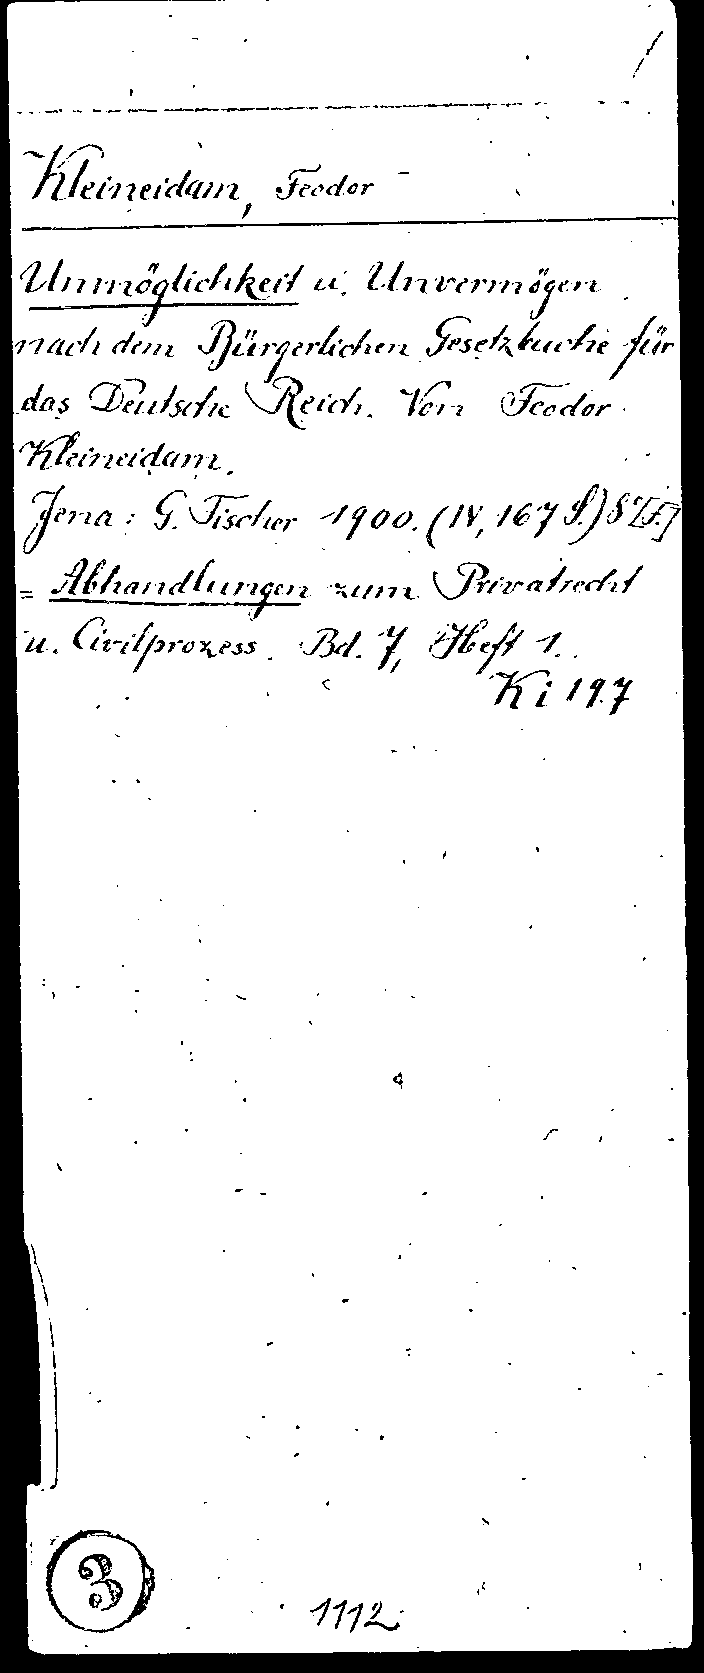 Kleineidam, Feodor
Unmöglichkeit u. Unvermögen
nach dem Bürgerlichen Gesetzbuche für
das Deutsche Reich. Von Feodor
Kleineidam.
Jena: G. Fischer 1900. (IV, 167 S.) 8°
= Abhandlungen zum Privatrecht
u. Civilprozess. Bd. 7, Heft 1.
Ki 197
3
1112